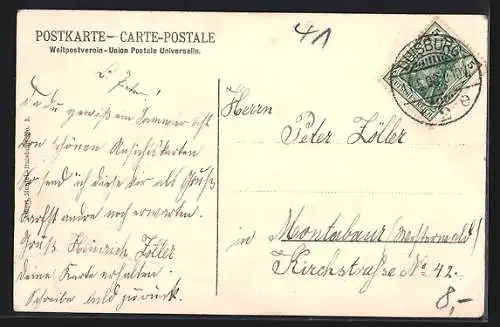 POSTKARTE – CARTE-POSTALE
Weltpostverein – Union Postale Universelle.
41
DUISBURG
L. Peter!
Da du gewiß im Sommer oft
von schönen Ansichtskarten
so send ich diese dir als Gruß
darfst andre noch erwarten.
Gruß Heinrich Zöller
deine Karte erhalten.
Schreibe bald zurück.
Herrn
Peter Zöller
in Montabaur (Westerwald)
Kirchstraße No 42.
8,-